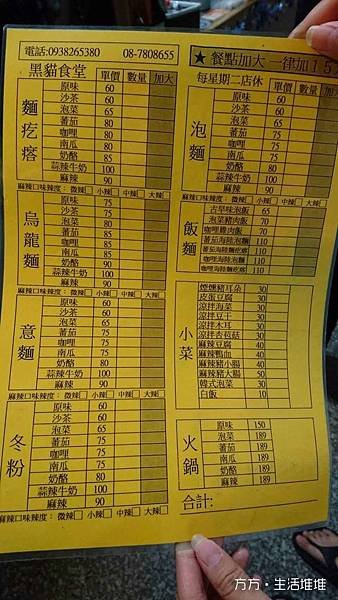 電話:0938265380 08-7808655
黑貓食堂 單價 數量 加大
麵疙瘩
原味 60
沙茶 60
泡菜 75
蕃茄 75
咖哩 75
南瓜 75
奶酪 80
蒜辣牛奶 100
麻辣 90
麻辣口味辣度: 微辣□ 小辣□ 中辣□ 大辣□
烏龍麵
原味 75
沙茶 75
泡菜 80
蕃茄 85
咖哩 85
南瓜 85
奶酪 90
蒜辣牛奶 100
麻辣 90
麻辣口味辣度: 微辣□ 小辣□ 中辣□ 大辣□
意麵
原味 60
沙茶 60
泡菜 75
蕃茄 75
咖哩 75
南瓜 75
奶酪 80
蒜辣牛奶 100
麻辣 90
麻辣口味辣度: 微辣□ 小辣□ 中辣□ 大辣□
冬粉
原味 60
沙茶 60
泡菜 75
蕃茄 75
咖哩 75
南瓜 75
奶酪 80
蒜辣牛奶 100
麻辣 90
麻辣口味辣度: 微辣□ 小辣□ 中辣□ 大辣□
★ 餐點加大 一律加15
每星期二店休 單價 數量 加大
泡麵
原味 60
沙茶 60
泡菜 75
蕃茄 75
咖哩 75
南瓜 75
奶酪 80
蒜辣牛奶 100
麻辣 90
麻辣口味辣度: 微辣□ 小辣□ 中辣□ 大辣□
飯麵
古早味泡飯 65
泡菜豬肉飯 70
咖哩雞肉飯 70
蕃茄海陸泡麵 110
蕃茄海陸麵疙瘩 110
咖哩海陸泡麵 110
咖哩海陸麵疙瘩 110
小菜
煙燻豬耳朵 30
皮蛋豆腐 30
涼拌海菜 30
涼拌豆干 30
涼拌木耳 30
涼拌杏菇菇 30
麻辣豆腐 40
麻辣鴨血 40
麻辣豬小腸 40
麻辣豬大腸 50
韓式泡菜 30
白飯 10
火鍋
原味 150
泡菜 189
蕃茄 189
南瓜 189
奶酪 189
麻辣 189
合計:
方方·生活堆堆